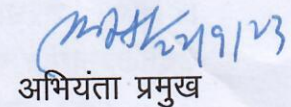 22/9/23
अभियंता प्रमुख